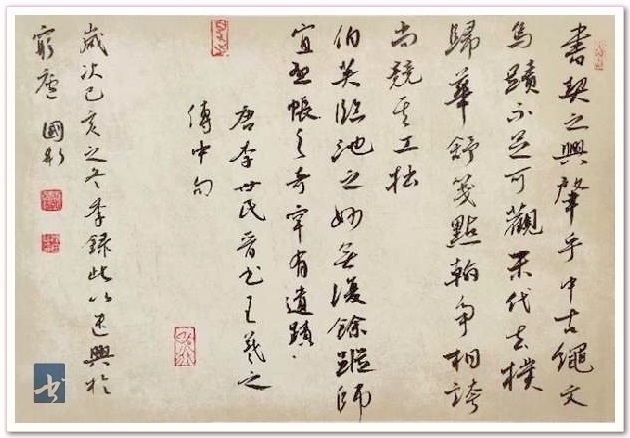 書契之興肇乎中古繩文
鳥蹟不足可觀末代去樸
歸華舒箋點翰爭相誇
尚競其工拙
伯英臨池之妙無復餘蹤師
宜懸帳之奇罕有遺蹟
唐李世民晉书王羲之
傳中句
歲次己亥之冬季録此以遣興於
窮廬 國
书